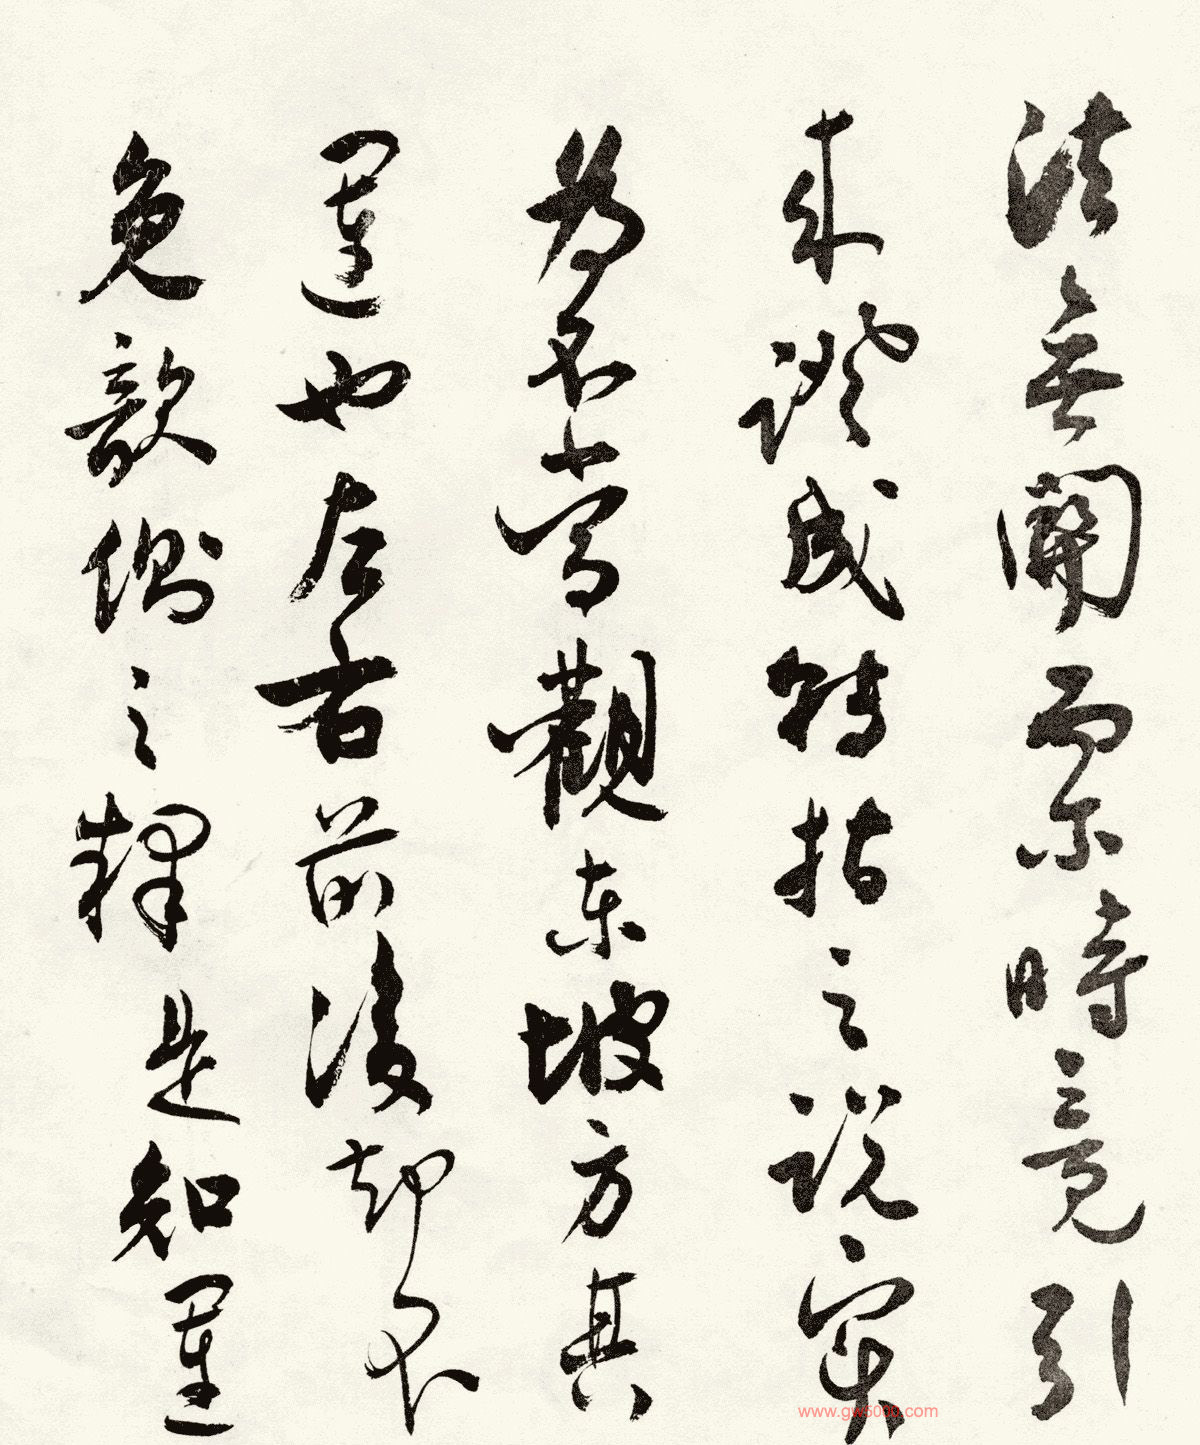 法無關而爾時竟引
來證成轉指之說實
為不當觀東坡方其
運也左右前後却不
免欹側之釋是知運
www.gw5000.com